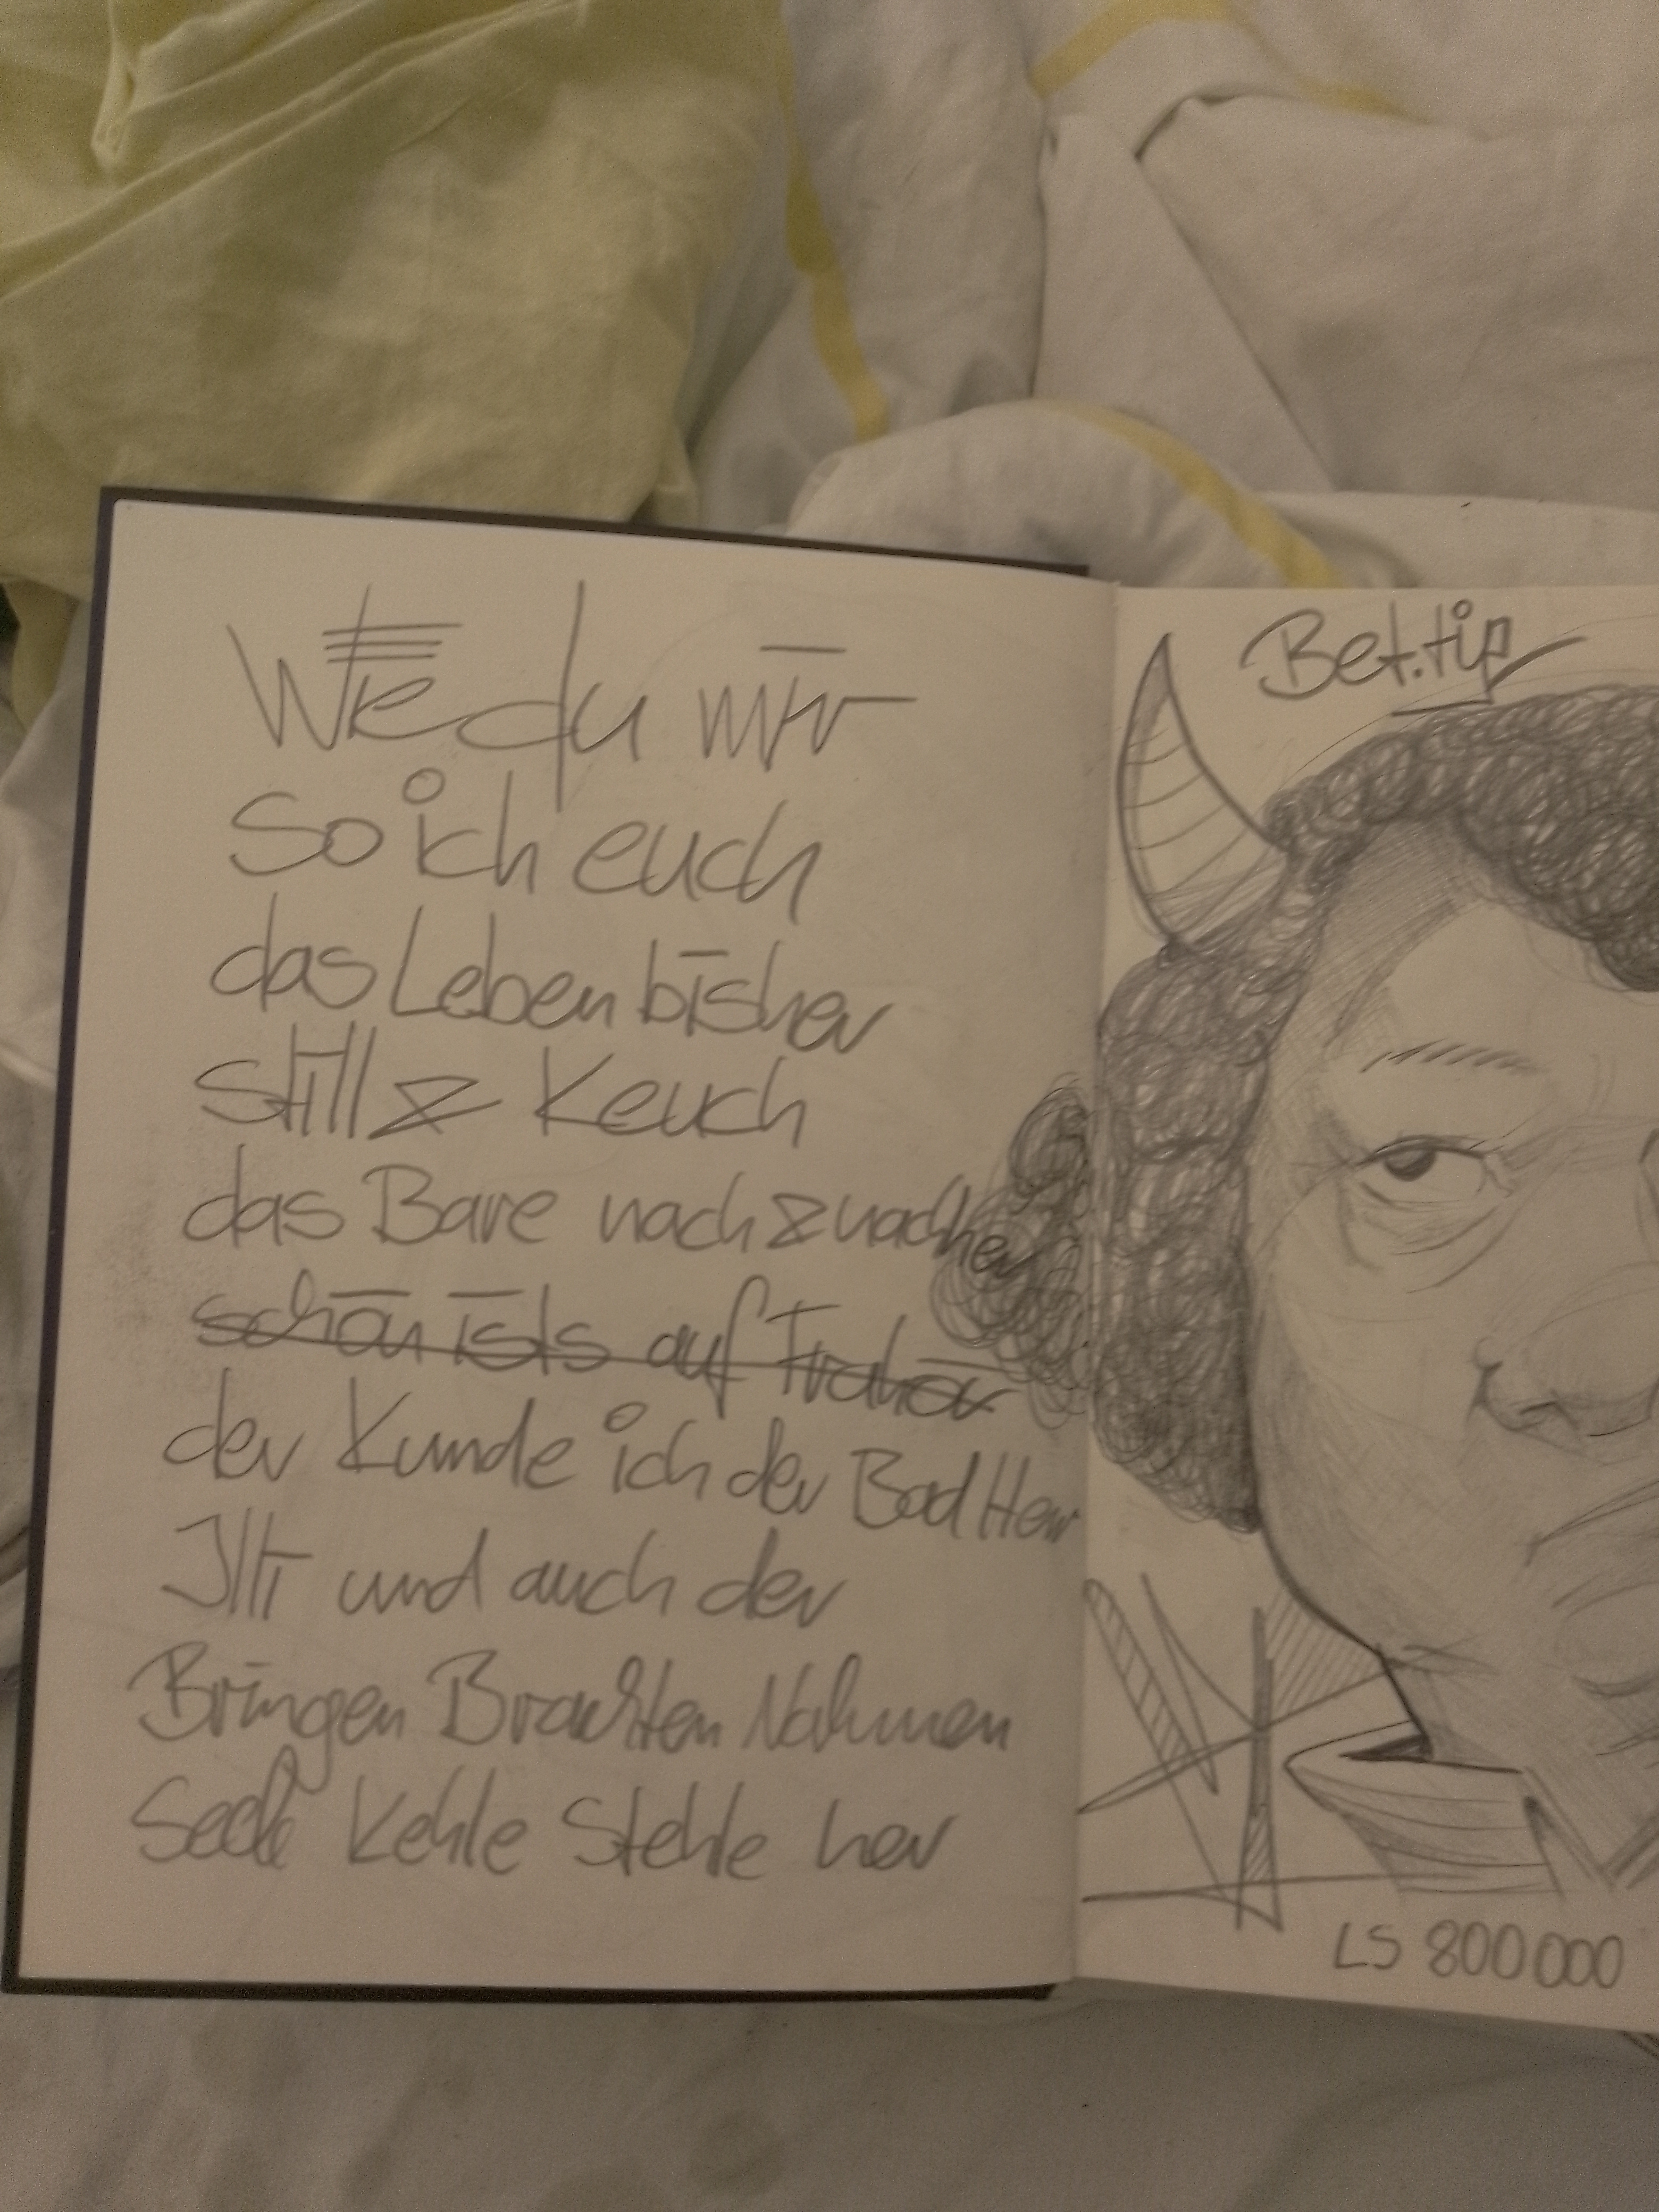 Wie du mir
So ich euch
das Leben bisher
still z Keuch
das Bare nach z nacher
schön ists auf
der Kunde ich der Bad Herr
und auch der
Bringen Brachten Nahmen
Seele Kehle Stehle her
Bet.tip
LS 800000